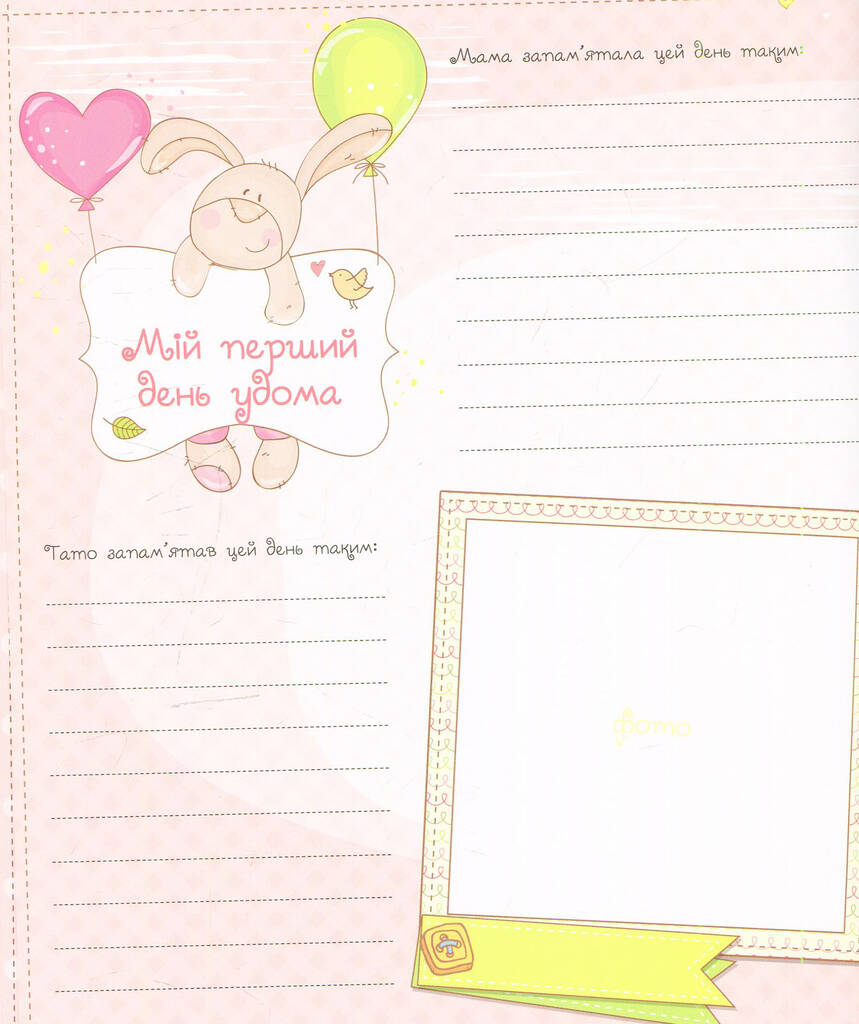 Мама запам'ятала цей день таким:
Мій перший
день удома
Тато запам'ятав цей день таким:
фото